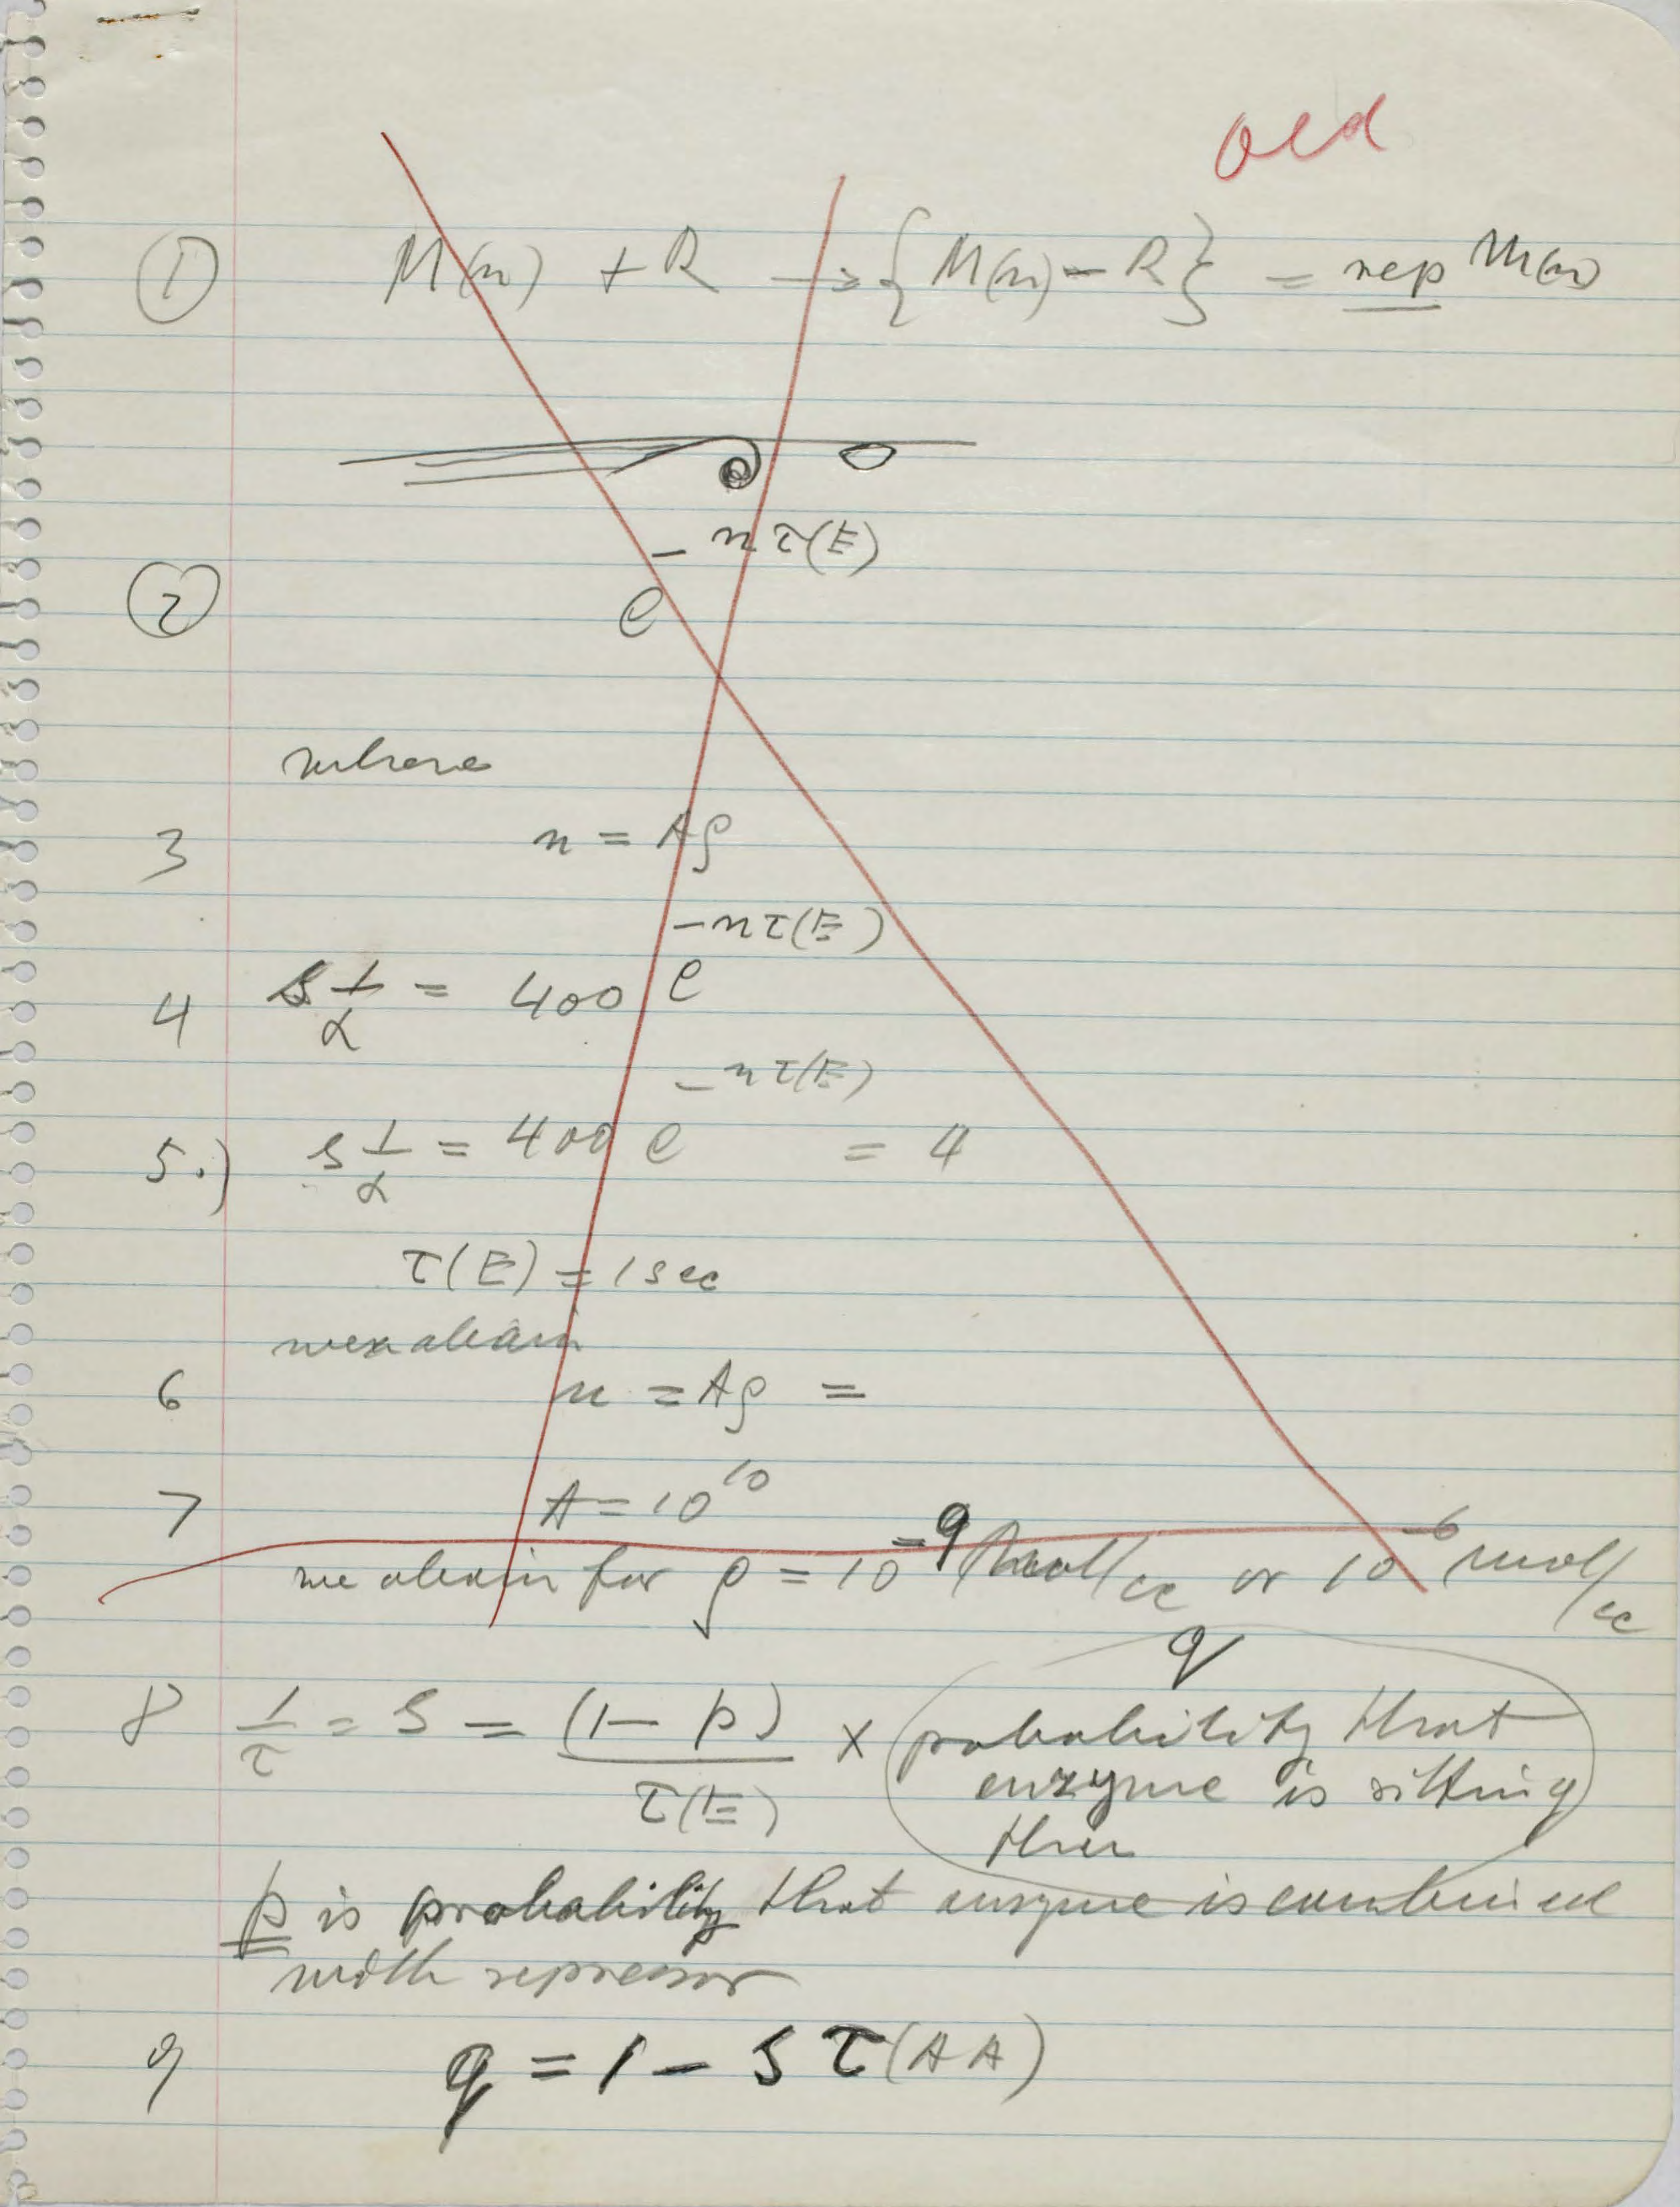 old
① M(n) + R → {M(n) – R} = rep M(n)
② e^{-nτ(E)}
where
3 n = Aρ
4 s 1/α = 400 e^{-nτ(E)}
5.) s 1/α = 400 e^{-nτ(E)} = 4
τ(E) = 1 sec
we obtain
6 n = Aρ =
7 A = 10^{10}
we obtain for ρ = 10^{-9} mol/cc or 10^{-6} mol/cc
q
8 1/τ = S = (1 – p)/τ(E) × probability that
enzyme is sitting
there
p is probability that enzyme is combined
with repressor
9 q = 1 – S τ(AA)